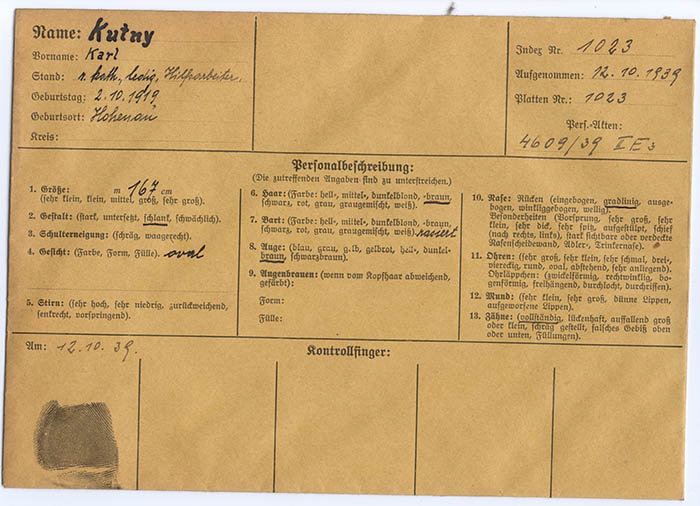 Name: Kutny
Vorname: Karl
Stand: r. kath., ledig, Hilfsarbeiter.
Geburtstag: 2.10.1919
Geburtsort: Hohenau
Kreis:
Index Nr. 1023
Aufgenommen: 12.10.1939
Platten Nr.: 1023
Pers.-Akten:
4609/39 II E 3
Personalbeschreibung:
(Die zutreffenden Angaben sind zu unterstreichen.)
1. Größe: m 167 cm
(sehr klein, klein, mittel, groß, sehr groß).
2. Gestalt: (stark, untersetzt, schlank, schwächlich).
3. Schulterneigung: (schräg, waagerecht).
4. Gesicht: (Farbe, Form, Fülle). oval
5. Stirn: (sehr hoch, sehr niedrig, zurückweichend,
senkrecht, vorspringend).
6. Haar: (Farbe: hell-, mittel-, dunkelblond, -braun,
schwarz, rot, grau, graugemischt, weiß).
7. Bart: (Farbe: hell-, mittel-, dunkelblond, -braun,
schwarz, rot, grau, graugemischt, weiß). rasiert
8. Auge: (blau, grau, gelb, gelbrot, hell-, dunkel-
braun, schwarzbraun).
9. Augenbrauen: (wenn vom Kopfhaar abweichend,
gefärbt):
Form:
Fülle:
10. Nase: Rücken (eingebogen, gradlinig, ausge-
bogen, winkliggebogen, wellig).
Besonderheiten (Vorsprung, sehr groß, sehr
klein, sehr dick, sehr spitz, aufgestülpt, schief
(nach rechts, links), stark sichtbare oder verdeckte
Nasenscheidewand, Adler-, Trinkernase).
11. Ohren: (sehr groß, sehr klein, sehr schmal, drei-,
viereckig, rund, oval, abstehend, sehr anliegend).
Ohrläppchen: (zwickelförmig, rechtwinklig, bo-
genförmig, freihängend, durchlocht, durchrissen).
12. Mund: (sehr klein, sehr groß, dünne Lippen,
aufgeworfene Lippen).
13. Zähne: (vollständig, lückenhaft, auffallend groß
oder klein, schräg gestellt, falsches Gebiß oben
oder unten, Füllungen).
Am: 12.10.39.
Kontrollfinger: